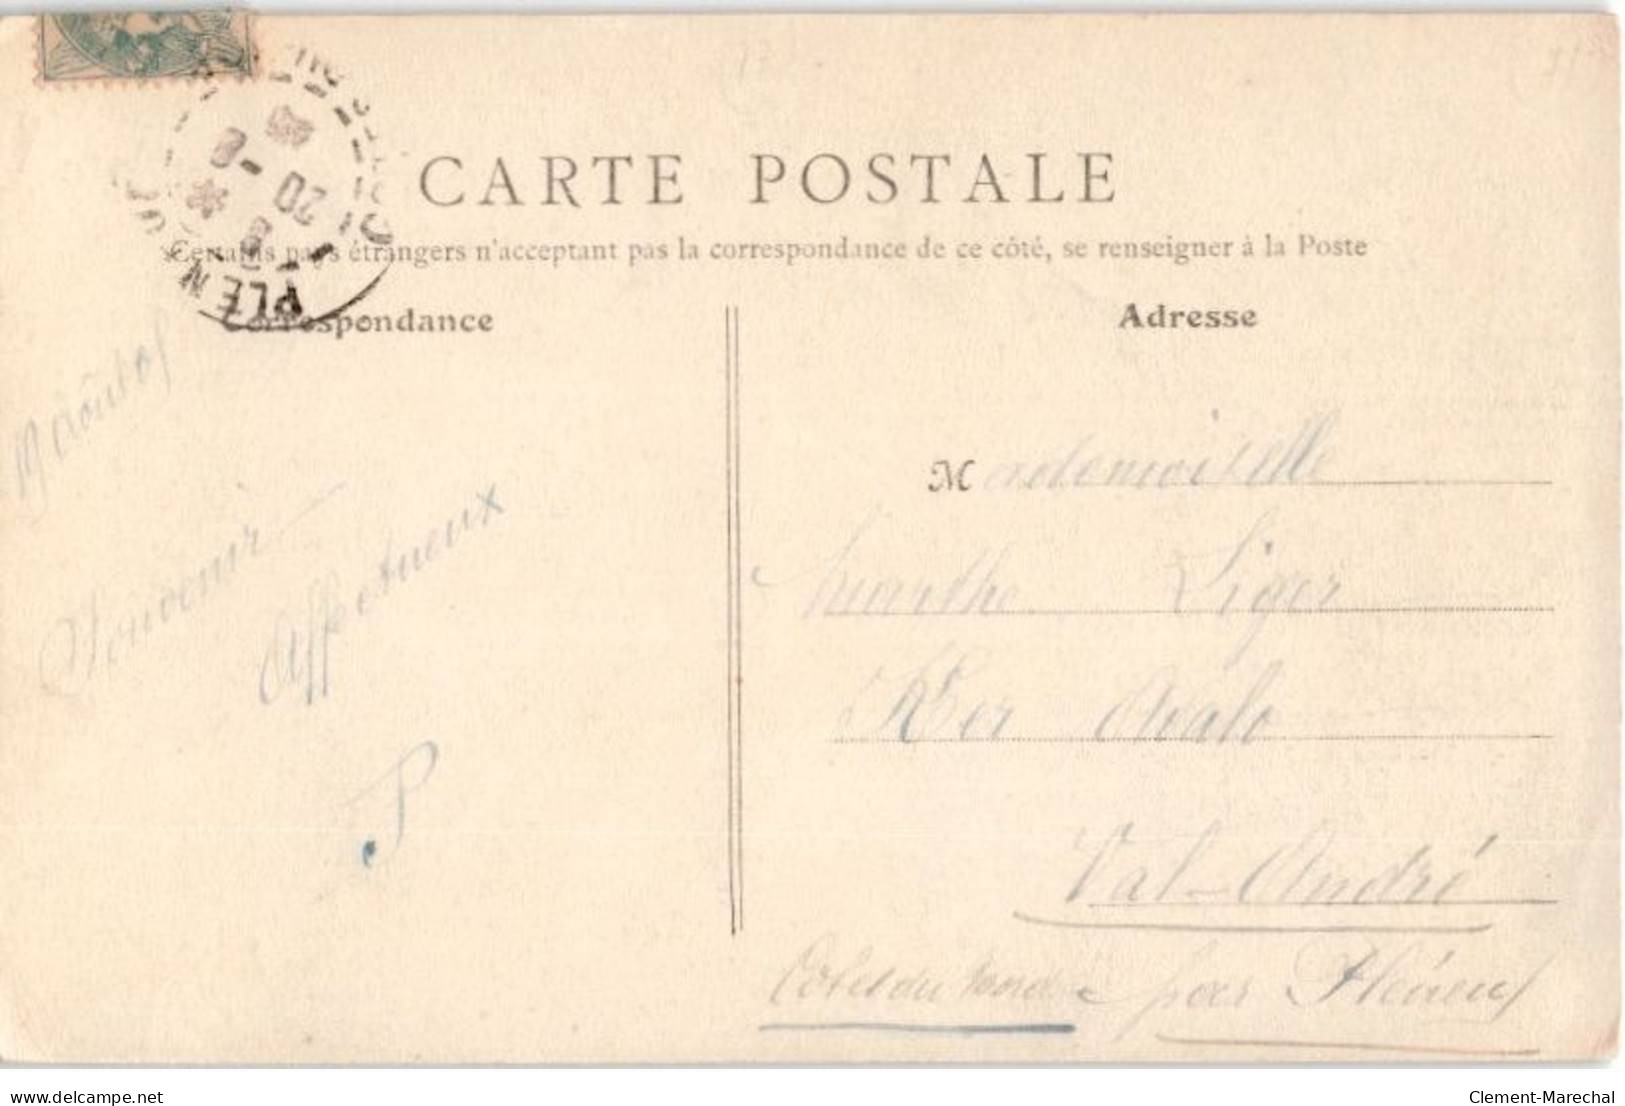 CARTE POSTALE
Certains pays étrangers n'acceptant pas la correspondance de ce côté, se renseigner à la Poste
Correspondance
Adresse
19 Août 08
Souvenir
Affectueux
P
Mademoiselle
Marthe Liger
Ker Avalo
Val-André
Côtes du Nord par Pléneuf
PLEN
20 -8
delcampe.net
Clement-Marechal